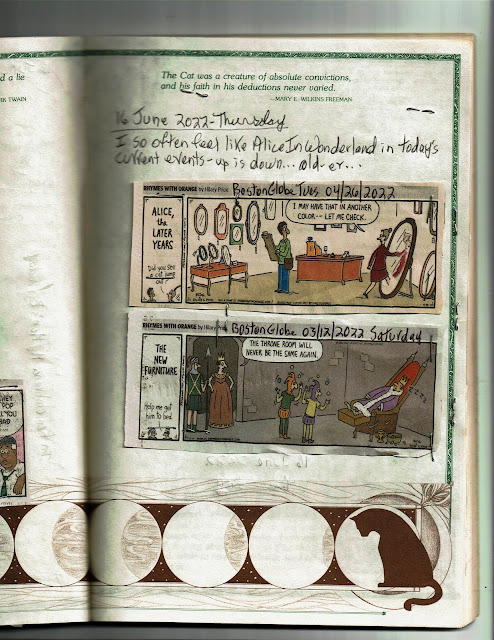 d a lie
RK TWAIN
The Cat was a creature of absolute convictions,
and his faith in his deductions never varied.
—MARY E. WILKINS FREEMAN
16 June 2022-Thursday
I so often feel like Alice In Wonderland in today's
current events-up is down... old-er...
RHYMES WITH ORANGE by Hilary Price Boston Globe Tues 04/26/2022
ALICE,
the
LATER
YEARS
Did you see
a cat jump
out?
I MAY HAVE THAT IN ANOTHER
COLOR-- LET ME CHECK.
RHYMES WITH ORANGE by Hilary Boston Globe 03/12/2022 Saturday
THE
NEW
FURNITURE
Help me get
him to bed.
THE THRONE ROOM WILL
NEVER BE THE SAME AGAIN.
HEY
POP
LL YOU
HAD